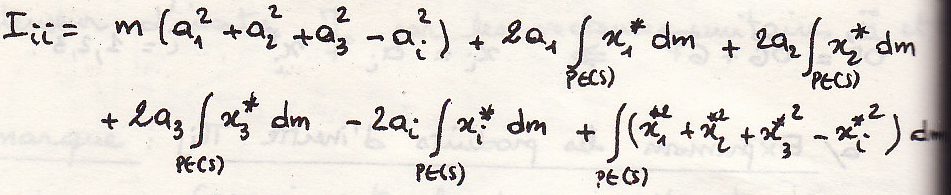 I_{ii} = m (a_1^2 + a_2^2 + a_3^2 - a_i^2) + 2a_1 ∫_{P∈(S)} x_1^* dm + 2a_2 ∫_{P∈(S)} x_2^* dm
+ 2a_3 ∫_{P∈(S)} x_3^* dm - 2a_i ∫_{P∈(S)} x_i^* dm + ∫_{P∈(S)} (x_1^{*2} + x_2^{*2} + x_3^{*2} - x_i^{*2}) d